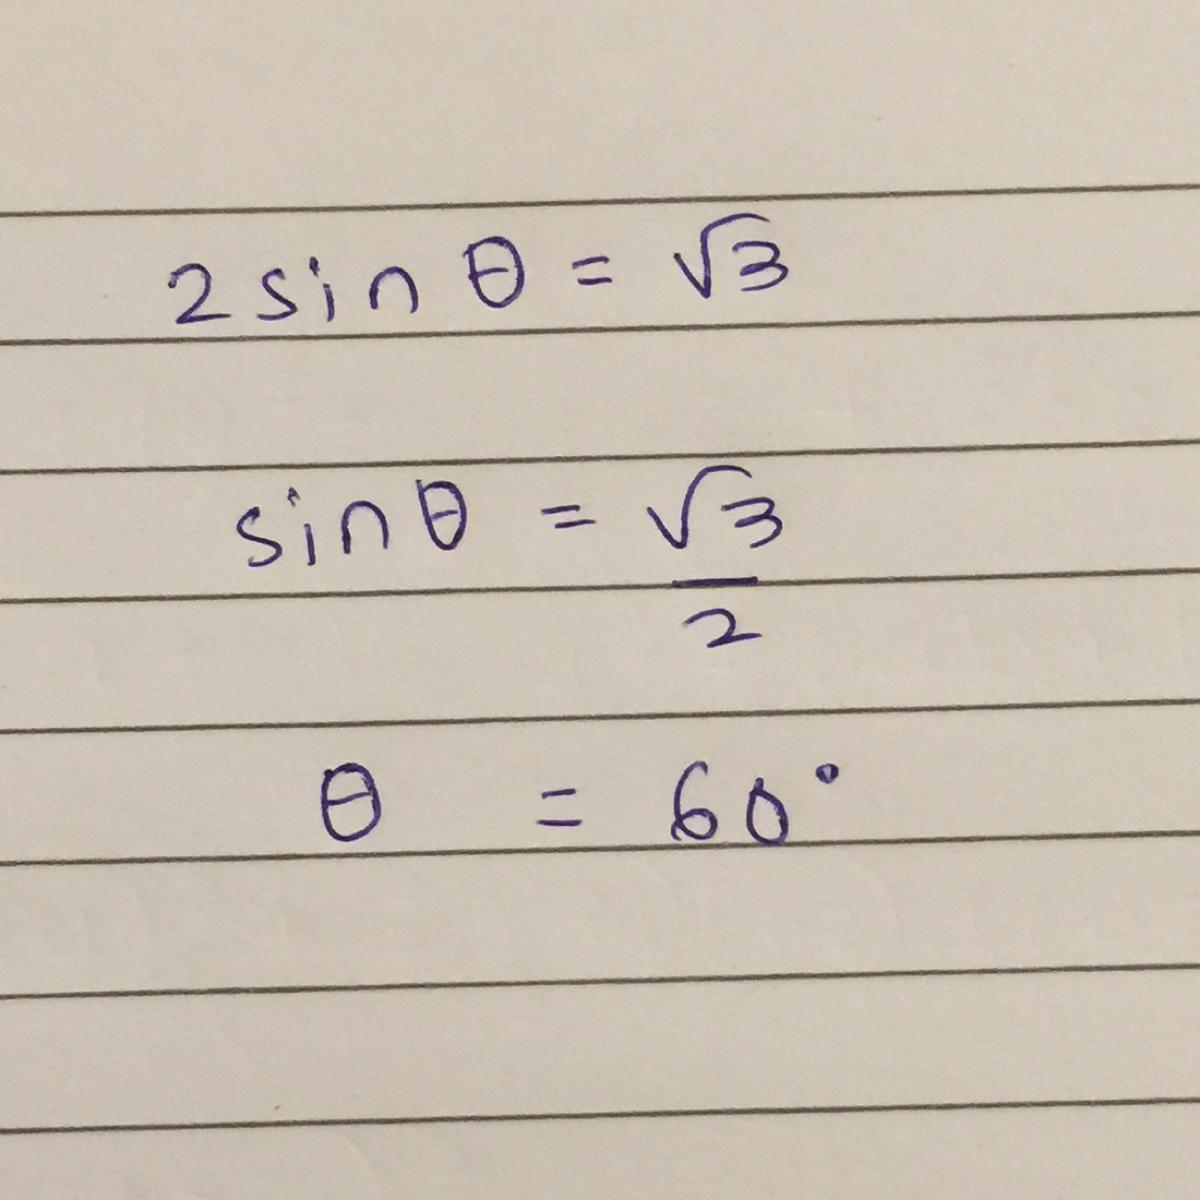 2 sin θ = √3
sin θ = √3/2
θ = 60°